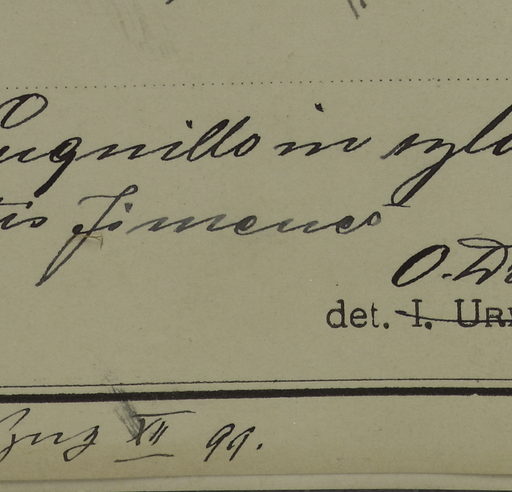 uquillo in sylv
tis Jimenes
O. D
det. I. Ur
XII 99.